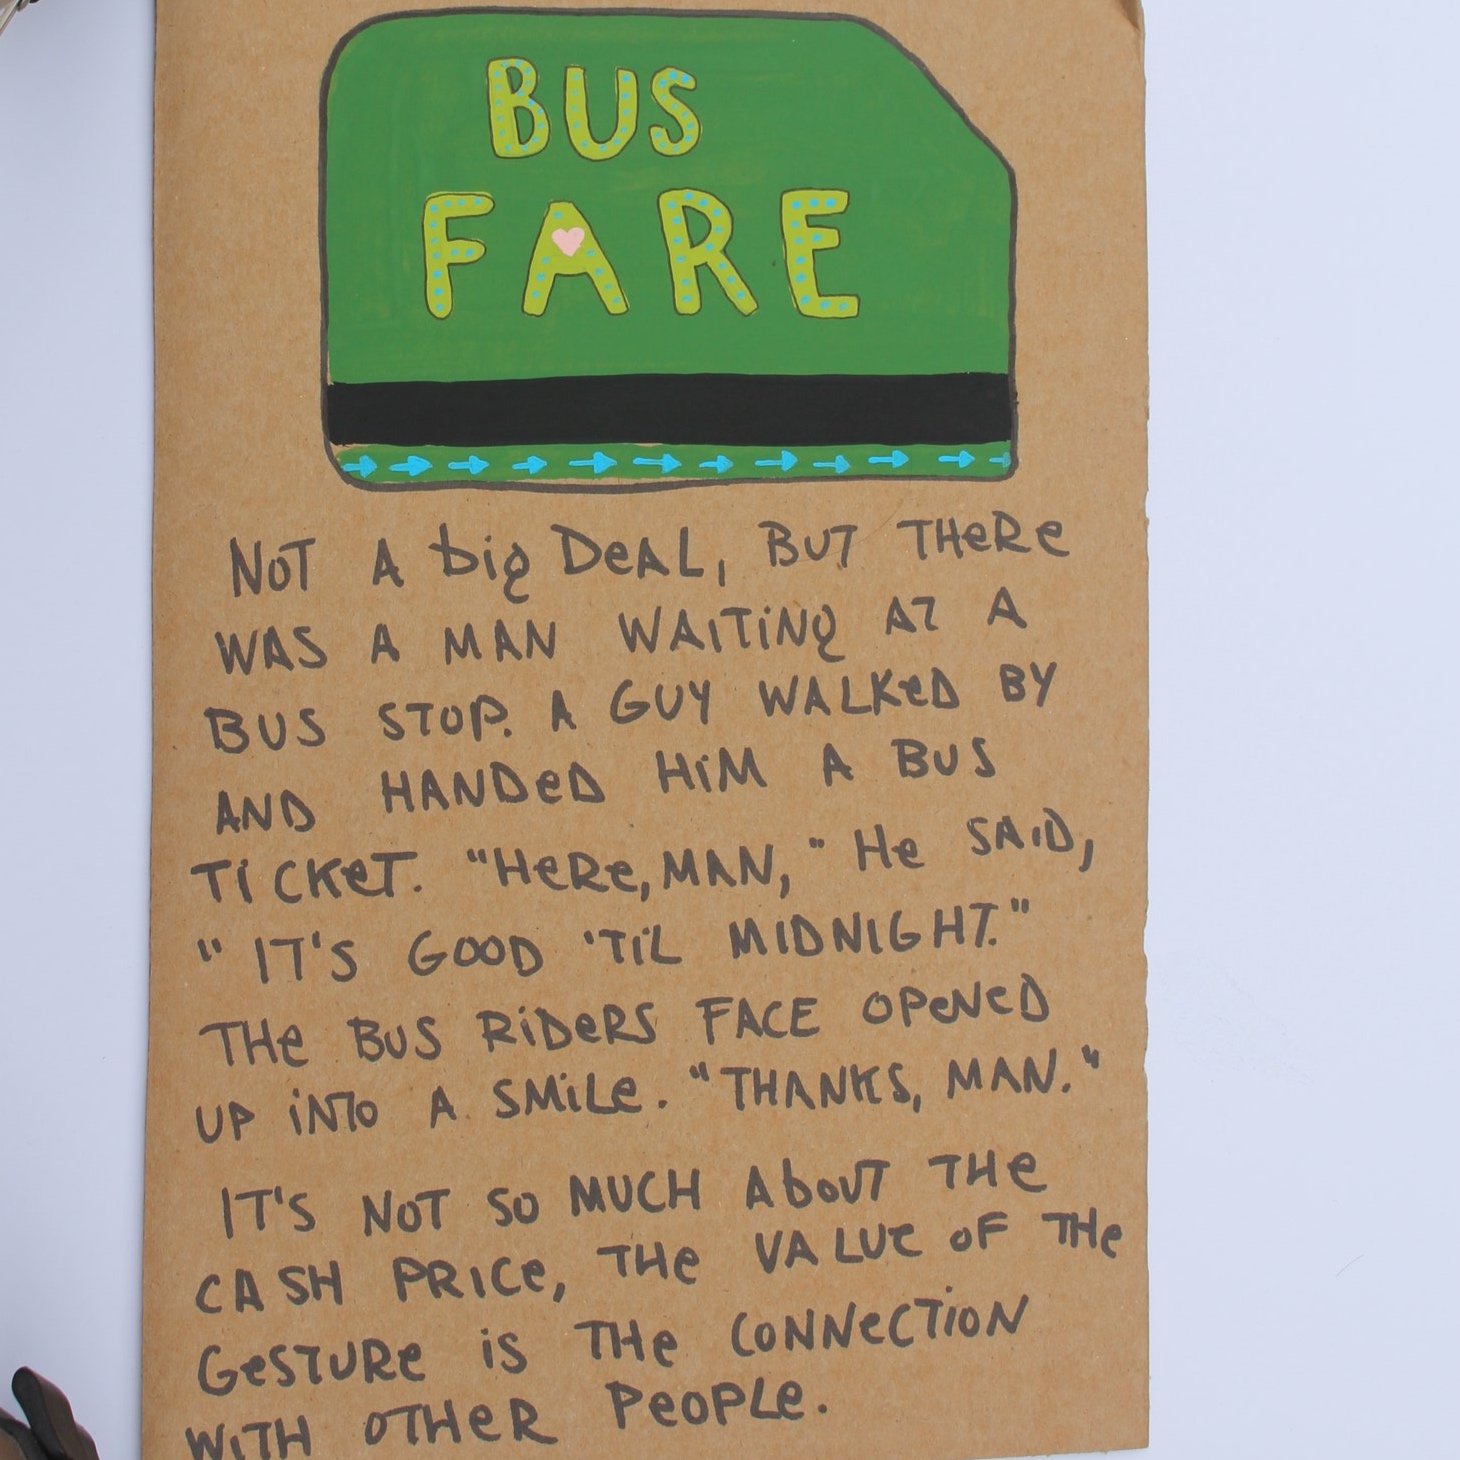 BUS
FARE
NOT A big DeAL, BUT THeRe
WAS A MAN WAiTiNg AT A
BUS STOP. A GUY WALKeD BY
AND HANDeD HiM A BUS
TiCKeT. "HeRe, MAN," He SAiD,
"IT'S GOOD 'TiL MIDNIGHT."
THe BUS RiDeRS FACE OPeNeD
UP iNTo A SMiLe. "THANKS, MAN."
IT'S NOT SO MUCH AbouT THe
CASH PRICe, THe VALUe oF THe
GeSTURe iS THe CoNNeCTioN
WiTH OTHeR PeoPLe.